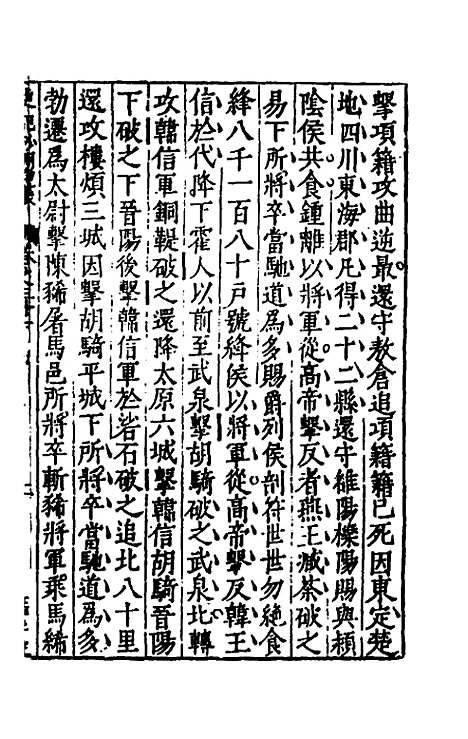 擊項籍攻曲逆最還守敖倉追項籍籍已死因東定楚
地四川東海郡凡得二十二縣還守雒陽櫟陽賜與潁
陰侯共食鍾離以將軍從高帝擊反者燕王臧荼破之
易下所將卒當馳道為多賜爵列侯剖符世世勿絕食
絳八千一百八十戸號絳侯以將軍從高帝擊反韓王
信於代降下霍人以前至武泉擊胡騎破之武泉北轉
攻韓信軍銅鞮破之還降太原六城擊韓信胡騎晉陽
下破之下晉陽後擊韓信軍於砦石破之追北八十里
還攻樓煩三城因擊胡騎平城下所將卒當馳道為多
勃遷為太尉擊陳豨屠馬邑所將卒斬豨將軍乘馬絺